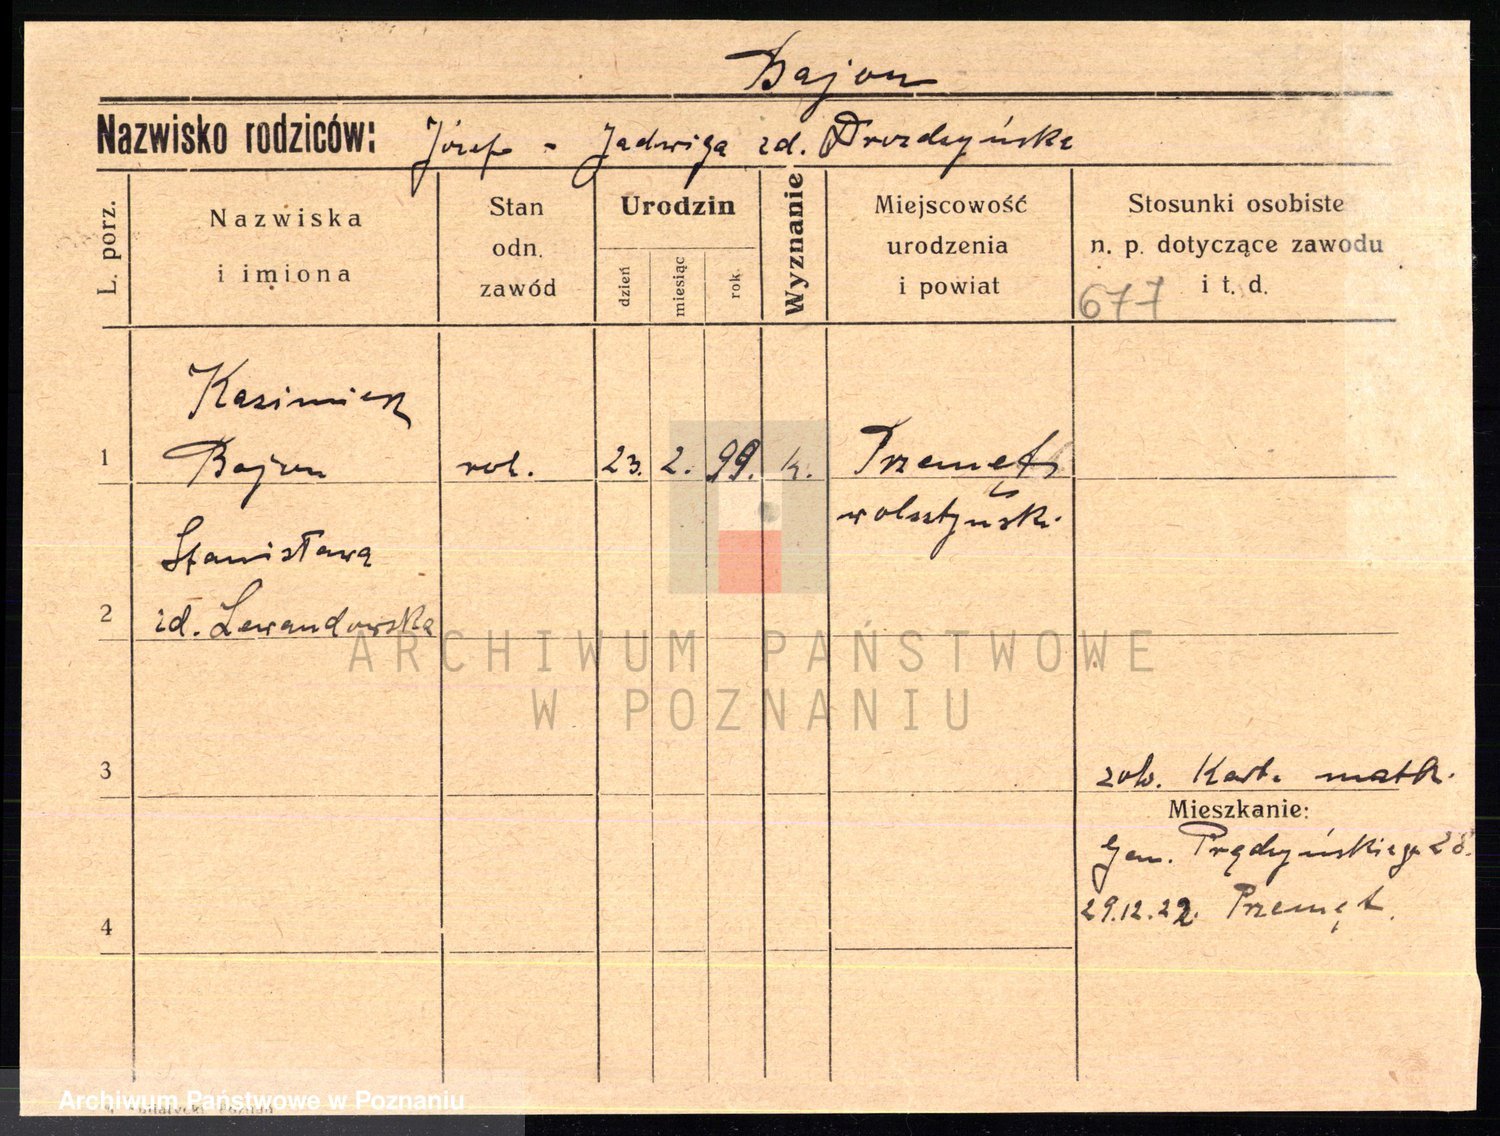 Bajon
Nazwisko rodziców: Józef - Jadwiga zd. Drozdzyńska
L. porz.
Nazwiska
i imiona
Stan
odn.
zawód
Urodzin
dzień
miesiąc
rok.
Wyznanie
Miejscowość
urodzenia
i powiat
Stosunki osobiste
n. p. dotyczące zawodu
i t. d.
677
Kazimierz
1 Bajon rol. 23. 2. 99. k. Przemęt
wolsztyński.
Stanisława
2 zd. Lewandowska
ARCHIWUM PAŃSTWOWE
W POZNANIU
3 zob. Kart. matk.
Mieszkanie:
Gen. Prądzyńskiego 28.
4 29.12.22. Przemęt.
Archiwum Państwowe w Poznaniu